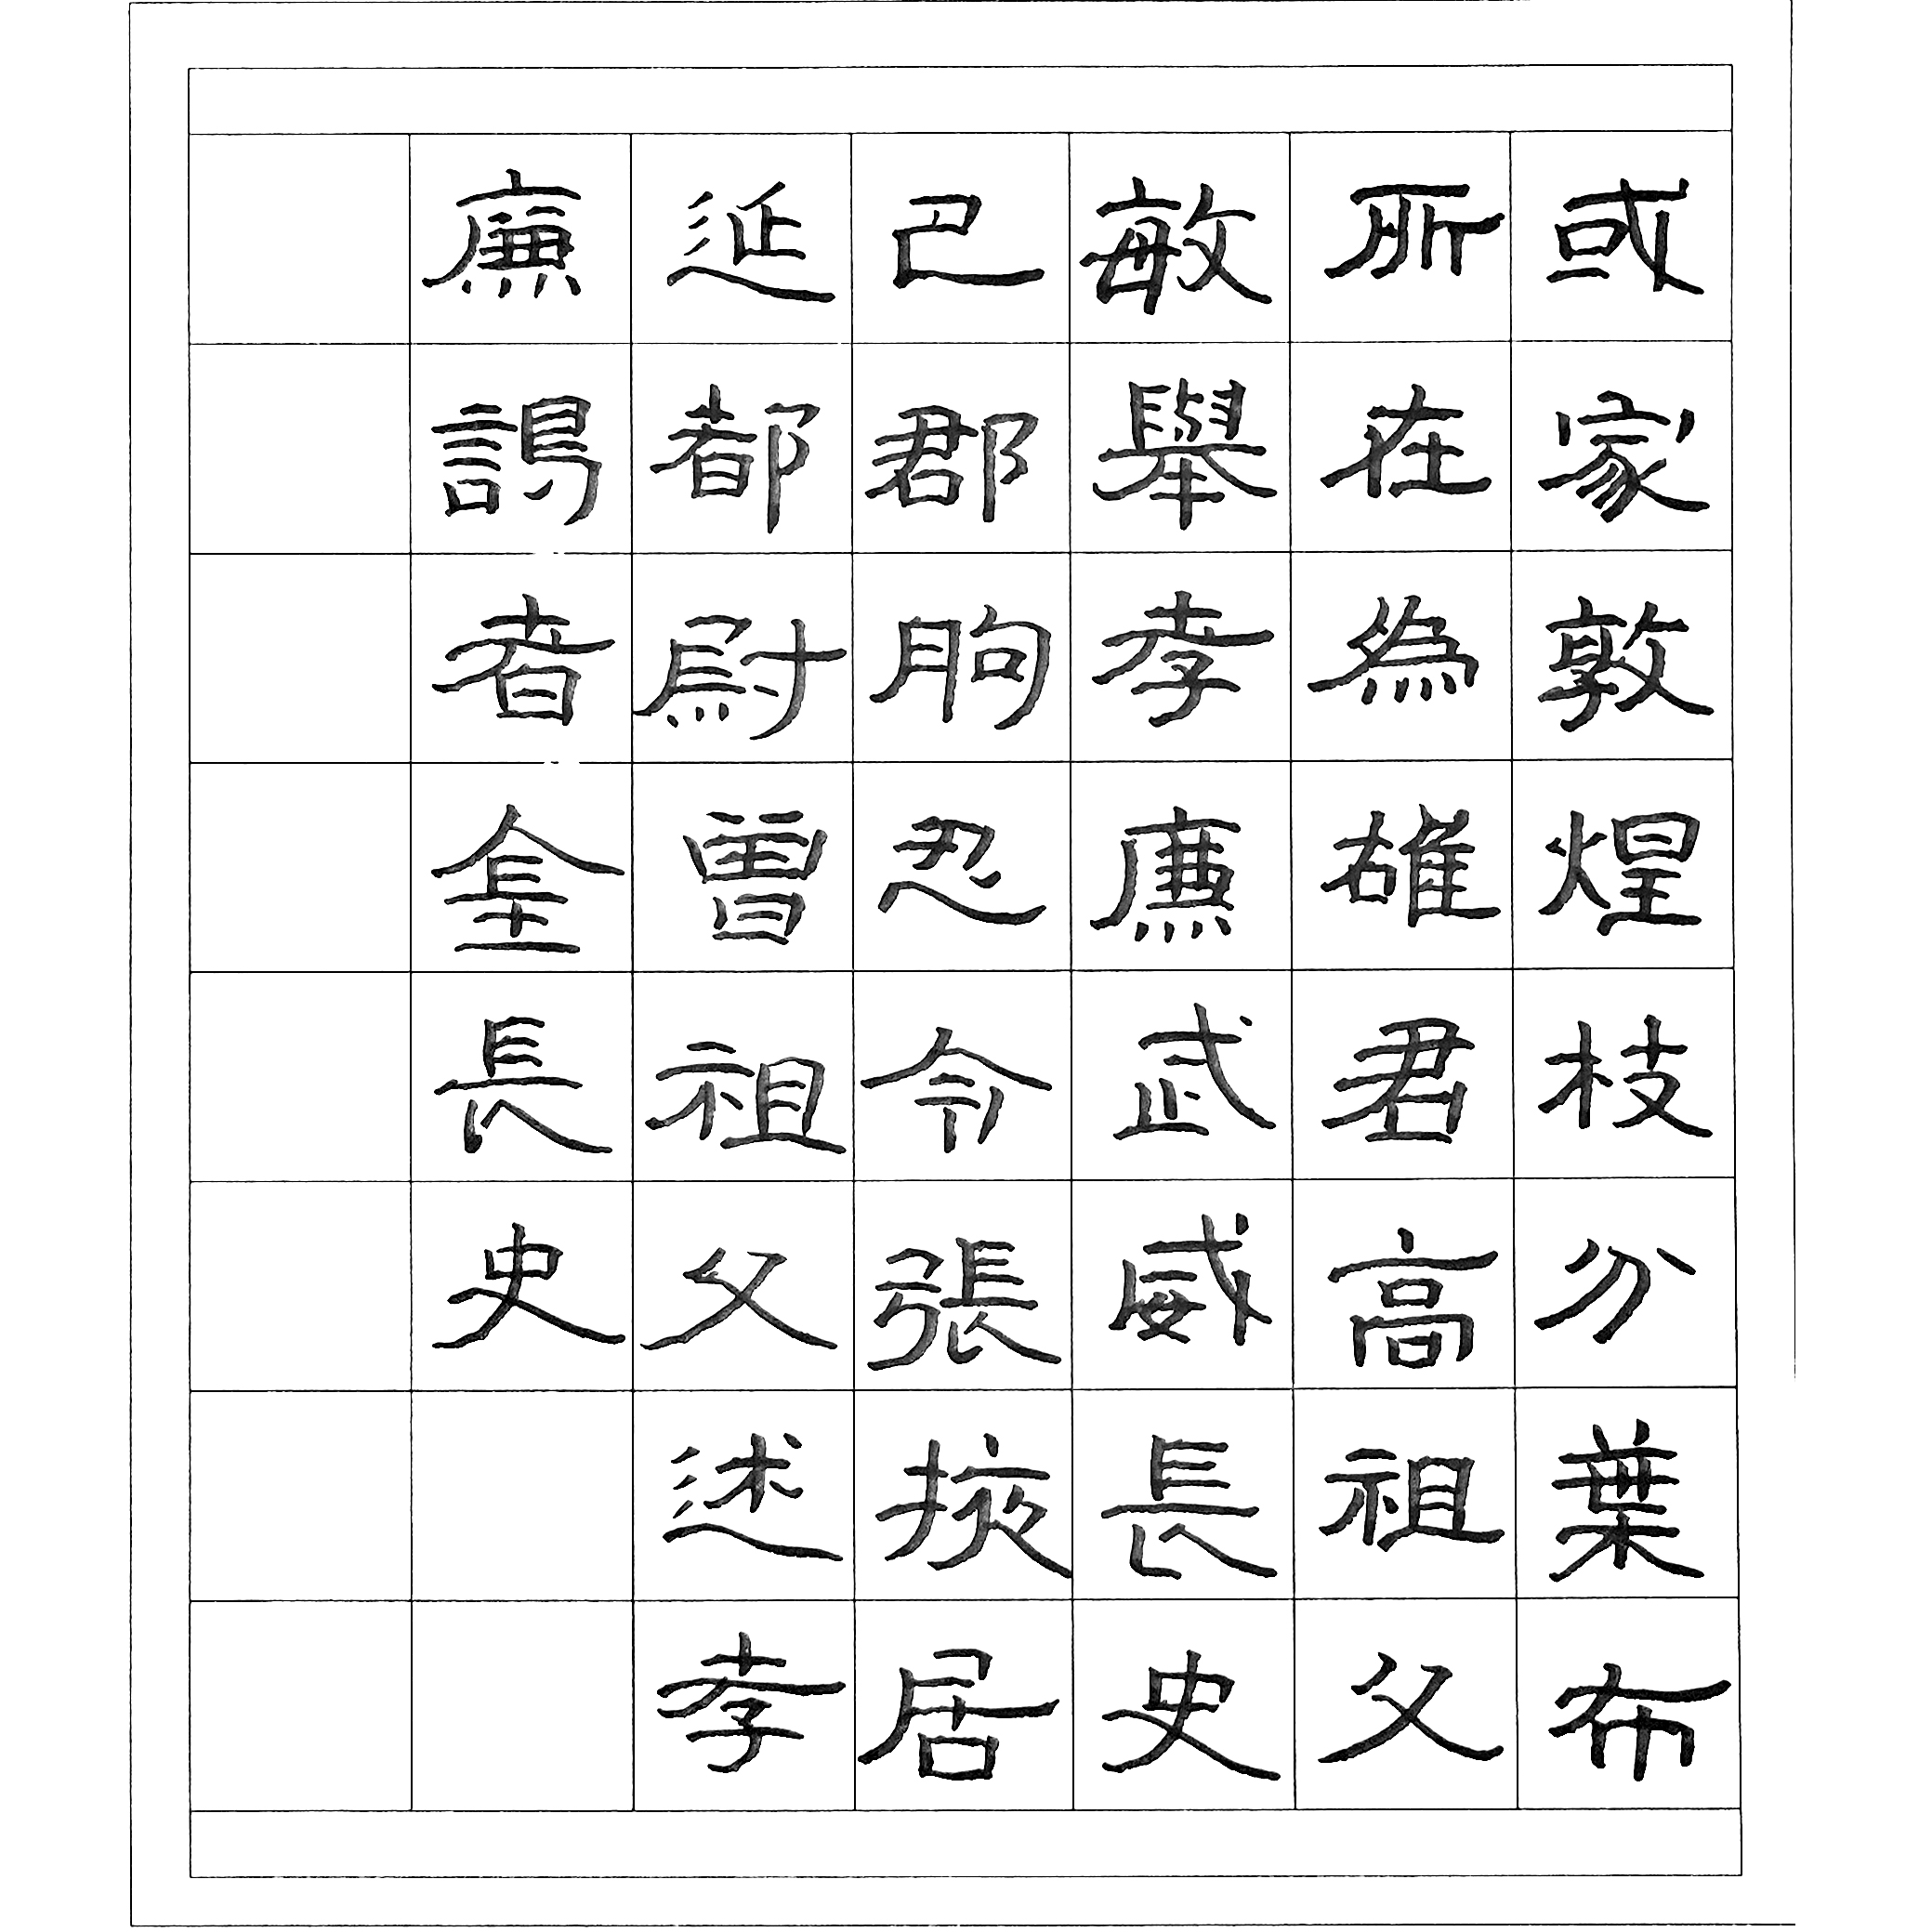 或家敦煌枝分葉布
所在為雄君高祖父
敏舉孝廉武威長史
巴郡朐忍令張掖居
延都尉曾祖父述孝
廉謁者長史